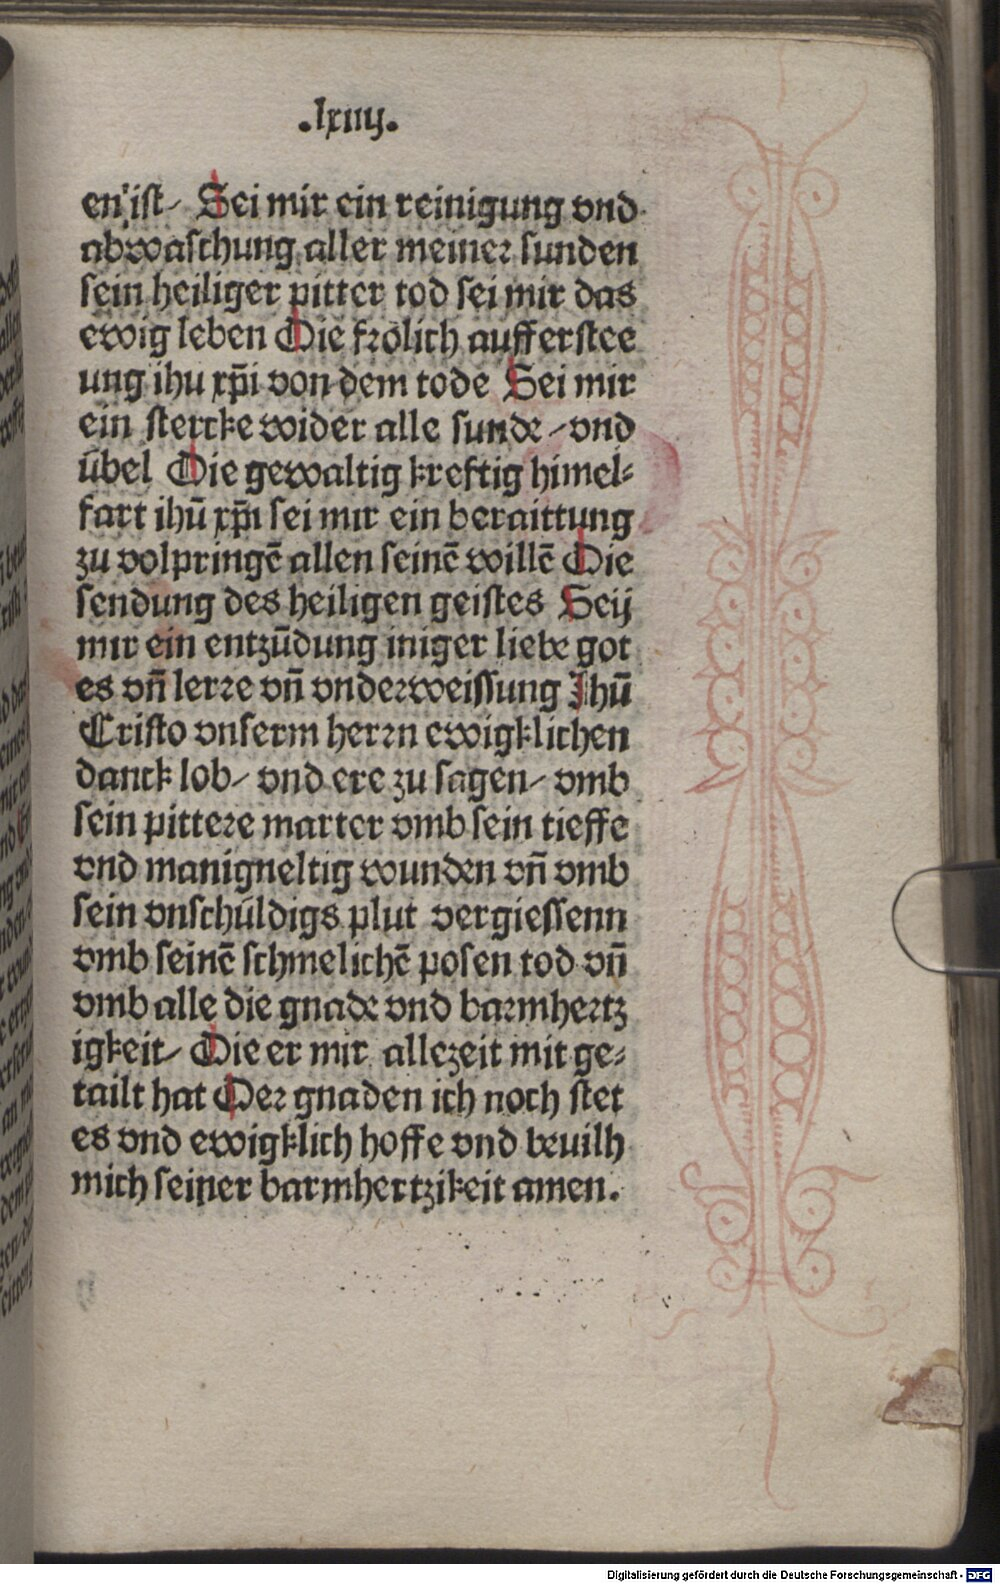 .lxiiij.
en ist⸗ Sei mir ein reinigung vnd
abwaschung aller meiner sunden
sein heiliger pitter tod sei mir das
ewig leben Die frölich aufferstee
ung ihu xp̄i von dem tode Sei mir
ein stercke wider alle sunde ⸗ vnd
übel Die gewaltig kreftig himel⸗
fart ihū xp̄i sei mir ein beraittung
zu volpringē allen seinē willē Die
sendung des heiligen geistes Seij
mir ein entzūdung iniger liebe got
es vn̄ lerre vn̄ vnderweissung Jhū
Cristo vnserm herrn ewigklichen
danck lob⸗ vnd ere zu sagen⸗ vmb
sein pittere marter vmb sein tieffe
vnd manigneltig wunden vn̄ vmb
sein vnschüldigs plut vergiessenn
vmb seinē schmelichē posen tod vn̄
vmb alle die gnade vnd barmhertz
igkeit⸗ Die er mir allezeit mit ge⸗
tailt hat Der gnaden ich noch stet
es vnd ewigklich hoffe vnd beuilh
mich seiner barmhertzikeit amen.
Digitalisierung gefördert durch die Deutsche Forschungsgemeinschaft - DFG